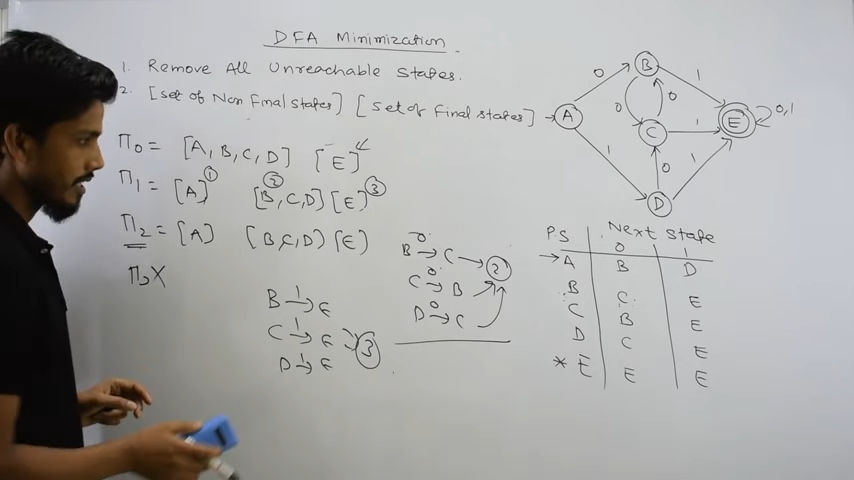 DFA Minimization
1. Remove All Unreachable States.
2. [Set of Non Final States] [Set of Final States]
Π0 = [A, B, C, D] [E]
Π1 = [A] ① [B, C, D] ② [E] ③
Π2 = [A] (B, C, D) [E)
Π3 X
B 0→ C → ②
C 0→ B
D 0→ C
B 1→ E
C 1→ E → ③
D 1→ E
A
B
C
D
E
0
1
0
0
1
0
1
0,1
P.S Next State
0 1
→A B D
B C E
C B E
D C E
* E E E